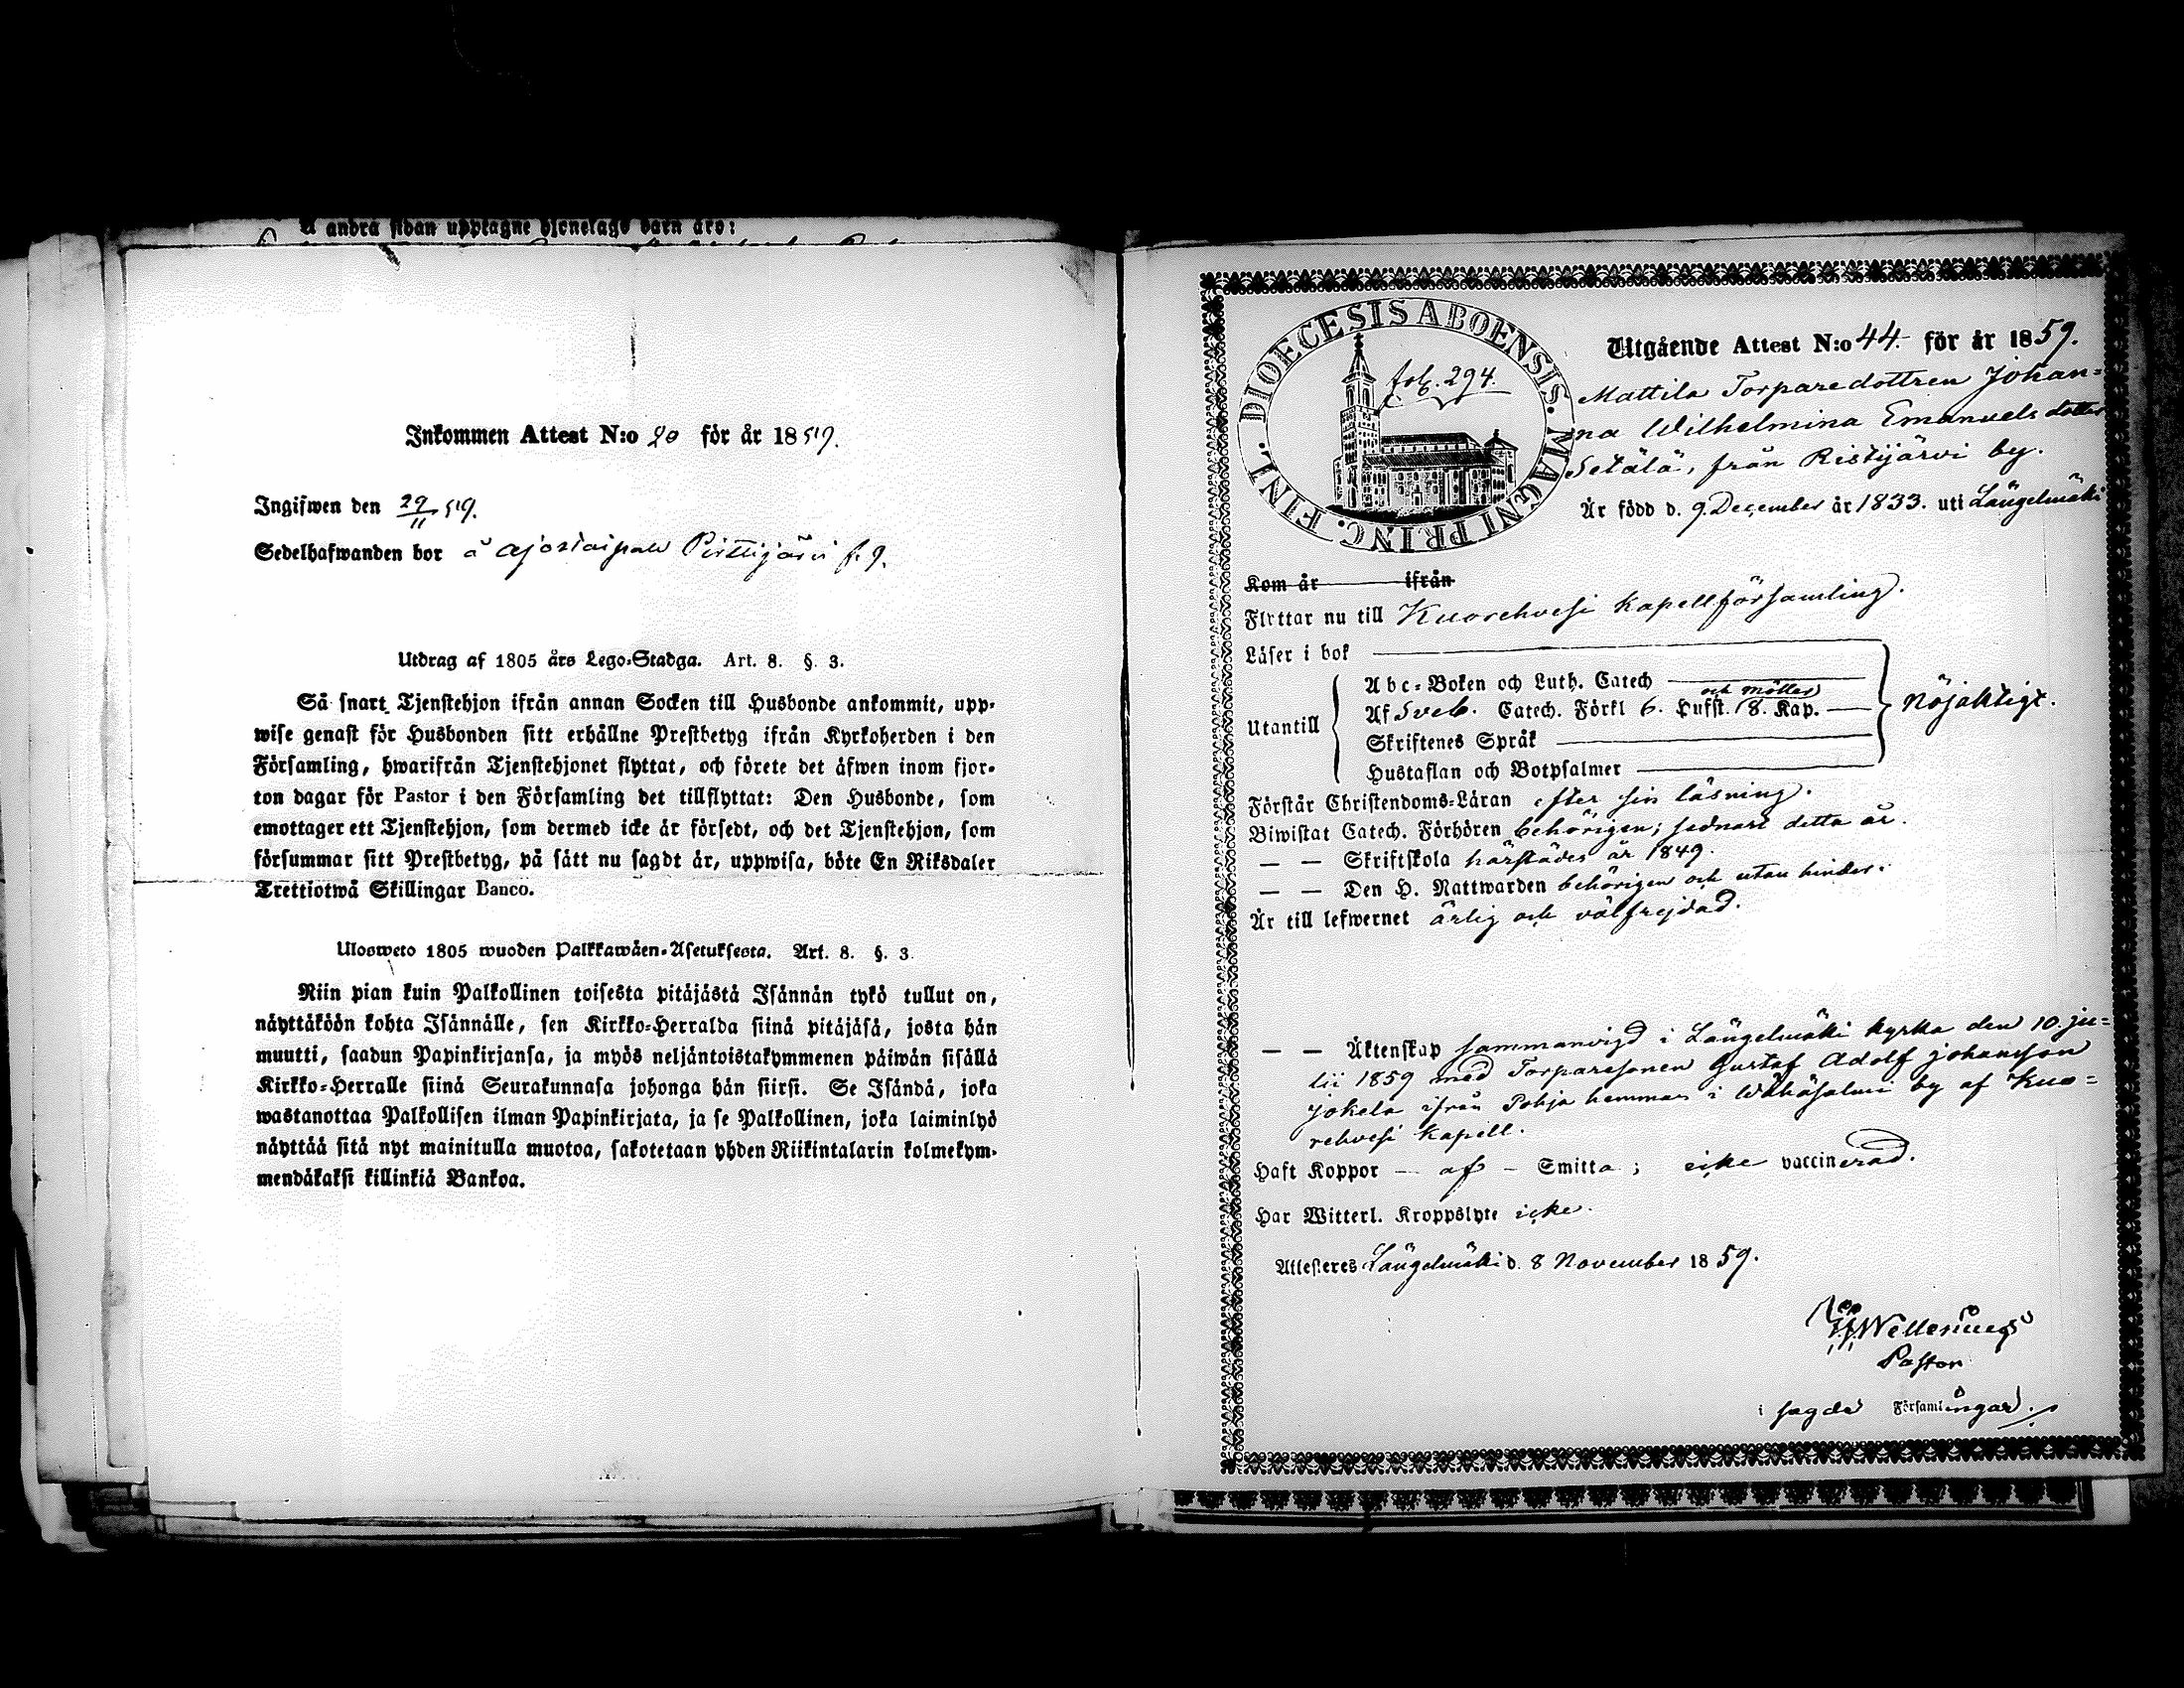 å andra sidan upptagne hjonelags barn äro:
Inkommen Attest N:o 20 för år 1859.
Ingifwen den 29/11 59.
Sedelhafwanden bor å Pirttijärvi f. 9.
Utdrag af 1805 års Lego-Stadga. Art. 8. §. 3.
Så snart Tjenstehjon ifrån annan Socken till Husbonde ankommit, upp-
wise genast för Husbonden sitt erhållne Prestbetyg ifrån Kyrkoherden i den
Församling, hwarifrån Tjenstehjonet flyttat, och förete det äfwen inom fjor-
ton dagar för Pastor i den Församling det tillflyttat: Den Husbonde, som
emottager ett Tjenstehjon, som dermed icke är försedt, och det Tjenstehjon, som
försummar sitt Prestbetyg, på sätt nu sagdt är, uppwisa, böte En Riksdaler
Trettiotwå Skillingar Banco.
Ulosweto 1805 wuoden Palkkawäen-Asetuksesta. Art. 8. §. 3.
Niin pian kuin Palkollinen toisesta pitäjästä Isännän tykö tullut on,
näyttäköön kohta Isännälle, sen Kirkko-Herralda siinä pitäjäsä, josta hän
muutti, saadun Papinkirjansa, ja myös neljäntoistakymmenen päiwän sisällä
Kirkko-Herralle siinä Seurakunnasa johonga hän siirsi. Se Isändä, joka
wastanottaa Palkollisen ilman Papinkirjata, ja se Palkollinen, joka laiminlyö
näyttää sitä nyt mainitulla muotoa, sakotetaan yhden Riikintalarin kolmekym-
mendäkaksi killinkiä Bankoa.
DIOECESIS ABOENSIS. MAGNI PRINC. FINL.
fol. 294.
Utgående Attest N:o 44. för år 1859.
Mattila Torparedottren Johan-
na Wilhelmina Emanuels dotter
Setälä, från Ristijärvi by.
Är född d. 9. December år 1833. uti Längelmäki
Kom år ifrån
Flyttar nu till Kuorehvesi Kapellförsamling.
Läser i bok
Abc-Boken och Luth. Catech
och möttes
Utantill Af Sveb. Catech. Förkl 6. Hufst. 18. Kap. nöjaktigt.
Skriftenes Språk
Hustaflan och Botpsalmer
Förstår Christendoms-Läran efter sin läsning.
Biwistat Catech. Förhören behörigen; sednast detta år.
— — Skriftskola härstädes år 1849.
— — Den H. Nattwarden behörigen och utan hinder.
Är till lefwernet ärlig och välfrejdad.
— — Äktenskap sammanvigd i Längelmäki kyrka den 10. ju-
lii 1859 med Torparesonen Gustaf Adolf Johansson
Jokela ifrån Pohja hemman i Wähäsalmi by af Kuo-
rehvesi Kapell.
Haft Koppor — af — Smitta; icke vaccinerad.
Har Witterl. Kroppslyte icke.
Attesteres Längelmäki d. 8 November 1859.
Pastor
i sagde Församlingar.